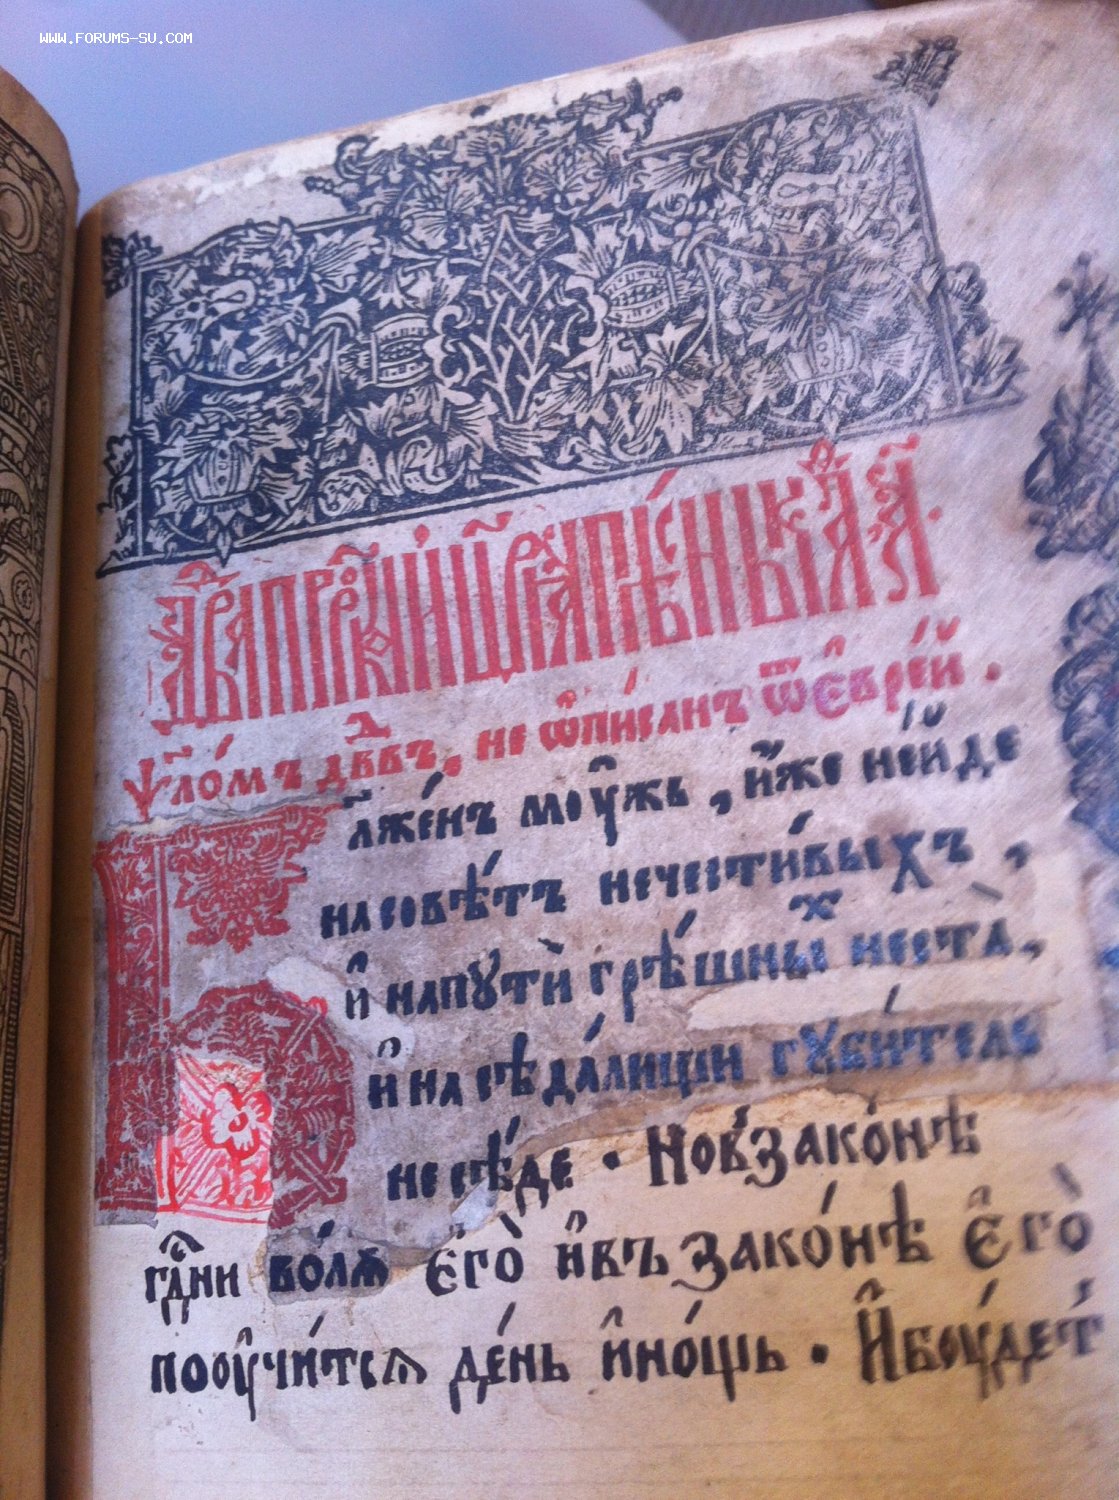 WWW.FORUMS-SU.COM
ѱл҃о́мъ дв҃дв҃ъ, не ѡ҆пи́санъ ѿ є҆врє́й.
л҃же́нъ моу́жь, и҆́же неи́де
насовѣ́тъ нечести́выхъ,
и҆ напꙋти̑ грѣ́шныⷯ неста̀,
и҆ насѣда́лищи гꙋби́тель
несѣ́де. Новзако́нѣ
гдⷭ҇ни во́лѧ є҆го̀ и҆въ зако́нѣ є҆го̀
пооучи́тсѧ де́нь и҆но́щь. И҆бꙋ́дет